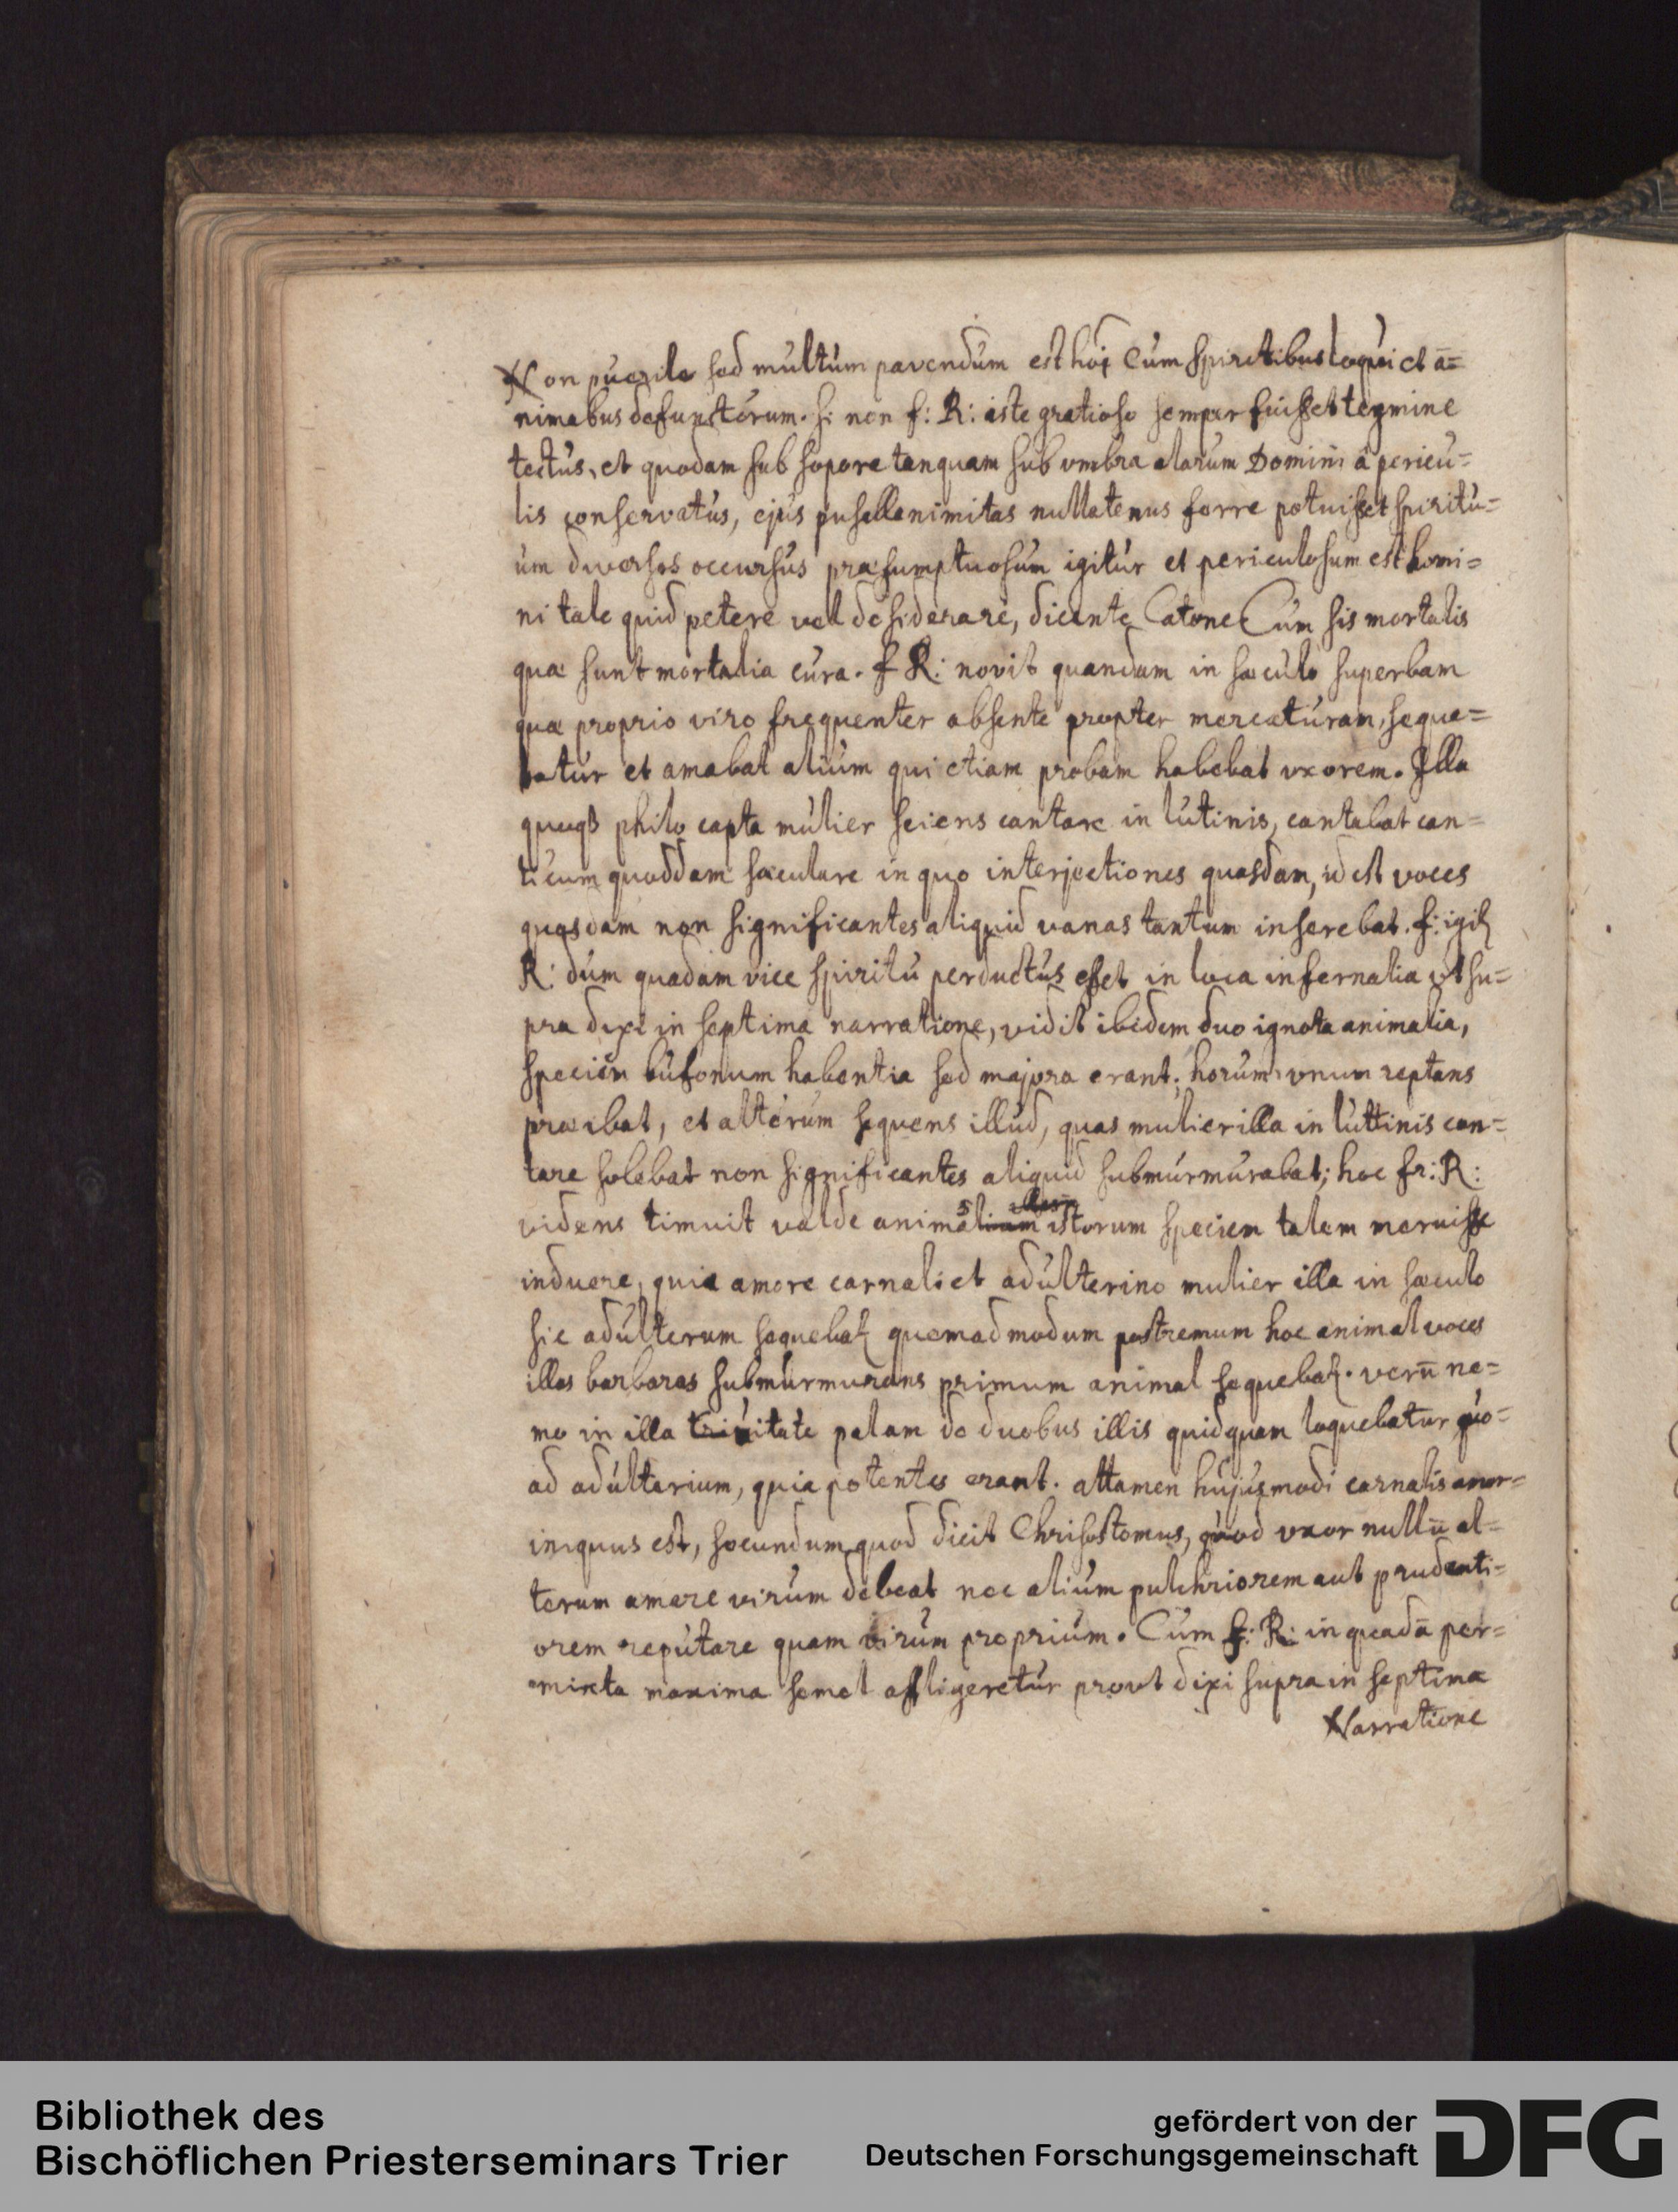 Non puerile sed multum pavendum est hoi Cum spiritibus loqui et a=
nimabus defunctorum. si non f: R: iste gratioso semper fuisset tegmine
tectus, et quodam sub sopore tanquam sub vmbra alarum Domini à pericu=
lis conservatus, ejus pusillanimitas nullatenus ferre potuisset spiritu=
um diversos occursus præsumptuosum igitur et periculosum est homi=
ni tale quid petere vel desiderare, dicente Catone Cum sis mortalis
quæ sunt mortalia cura. f R: novit quandam in sæculo superbam
quæ proprio viro frequenter absente propter mercaturam, seque=
batur et amabat alium qui etiam probam habebat vxorem. Illa
philo capta mulier sciens cantare in lutinis, cantabat can=
ticum quoddam sæculare in quo interjectiones quasdam, id est voces
quasdam non significantes aliquid vanas tantum inserebat. f: igitr
R: dum quadam vice spiritu perductus esset in loca infernalia vt su=
pra dixi in septima narratione, vidit ibidem duo ignota animalia,
speciem bufonum habentia sed majora erant; horum vnum reptans
præibat, et alterum sequens illud, quas mulier illa in luttinis can=
tare solebat non significantes aliquid submurmurabat; hoc fr: R:
videns timuit valde animalium istorum speciem talem meruisse
induere, quia amore carnali et adulterino mulier illa in sæculo
sic adulterum sequebatr quemadmodum postremum hoc animal voces
illas barbaras submurmurans primum animal sequebatr. verū ne=
mo in illa civitate palam de duobus illis quidquam loquebatur quo=
ad adulterium, quia potentes erant. attamen hujusmodi carnalis amor=
iniquus est, secundum quod dicit Chrisostomus, quod vxor nullū al=
terum amare virum debeat nec alium pulchriorem aut prudenti=
orem reputare quam virum proprium. Cum f: R: in quadā per=
mixta maxima semel affligeretur prout dixi supra in septima
Narratione
Bibliothek des
Bischöflichen Priesterseminars Trier
gefördert von der
Deutschen Forschungsgemeinschaft
DFG